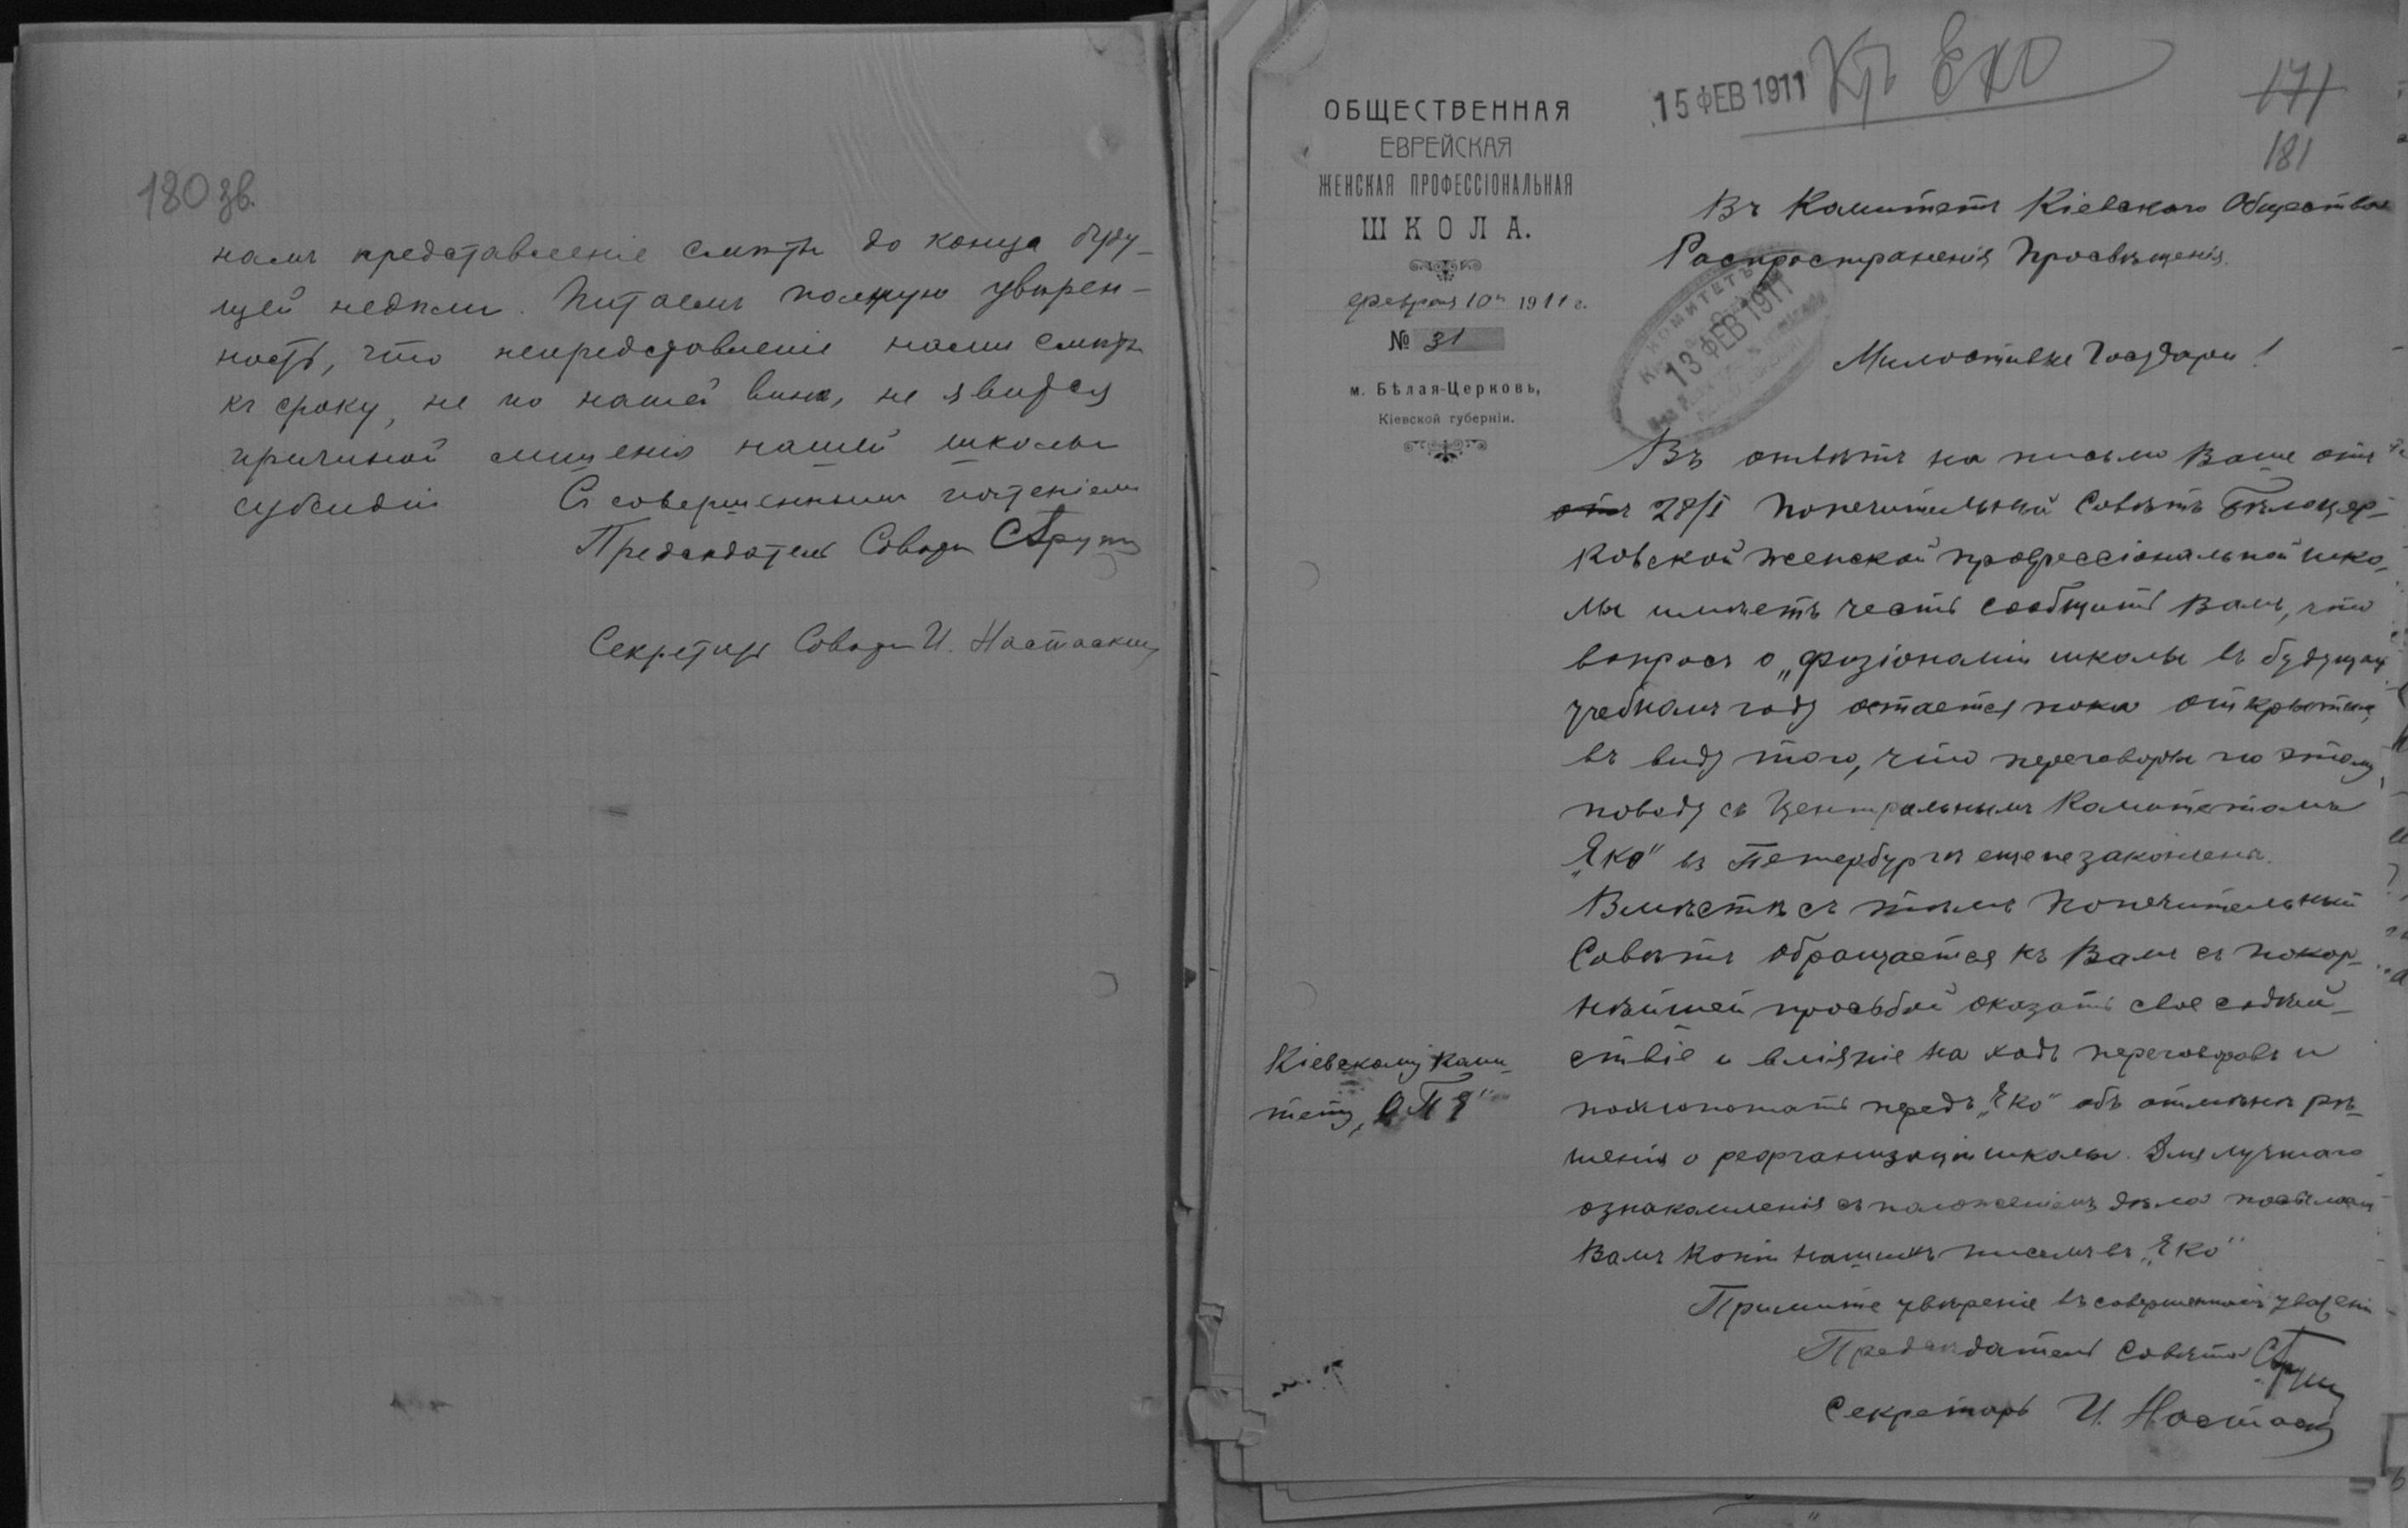 180 зв.
намъ представленіе смѣты до конца буду-
щей недѣли. Питаемъ полную увѣрен-
ность, что непредставленіе нами смѣты
къ сроку, не по нашей винѣ, не явится
причиной лишенія нашей школы
субсидіи. Съ совершеннымъ почтеніемъ
Предсѣдатель Совѣта
Секретарь Совѣта И.
15 ФЕВ 1911
Къ ЕКО
171
181
ОБЩЕСТВЕННАЯ
ЕВРЕЙСКАЯ
ЖЕНСКАЯ ПРОФЕССІОНАЛЬНАЯ
ШКОЛА.
февраля 10 1911 г.
№ 31
м. Бѣлая-Церковь,
Кіевской губерніи.
КОМИТЕТЪ
13 ФЕВ 1911
Въ Комитетъ Кіевскаго Общества
Распространенія Просвѣщенія.
Милостивые Государи!
Въ отвѣтъ на письмо Ваше отъ
отъ 28/I Попечительный Совѣтъ Бѣлоцер-
ковской женской профессіональной шко-
лы имѣетъ честь сообщить Вамъ, что
вопросъ о „физіономіи школы въ будущемъ
учебномъ году остается пока открытымъ,
въ виду того, что переговоры по этому
поводу съ Центральнымъ Комитетомъ
„Еко" въ Петербургѣ еще не закончены.
Вмѣстѣ съ тѣмъ Попечительный
Совѣтъ обращается къ Вамъ съ покор-
нѣйшей просьбой оказать свое содѣй-
ствіе и вліяніе на ходъ переговоровъ и
похлопотать передъ „Еко" объ отмѣнѣ рѣ-
шенія о реорганизаціи школы. Для лучшаго
ознакомленія съ положеніемъ дѣла посылаемъ
Вамъ копіи нашихъ писемъ въ „Еко"
Примите увѣреніе въ совершенномъ уваженіи
Предсѣдатель Совѣта
Секретарь И.
Кіевскому Коми-
тету